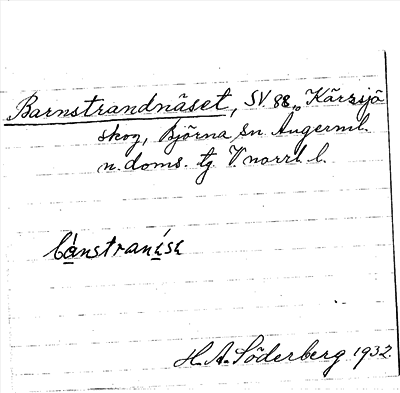 Barnstrandnäset, SV.88, Kärrsjö
skog, Björna sn Ångerml.
n. doms. tg. V norrl. l.
bànstranə́sə
H. A. Söderberg 1932.